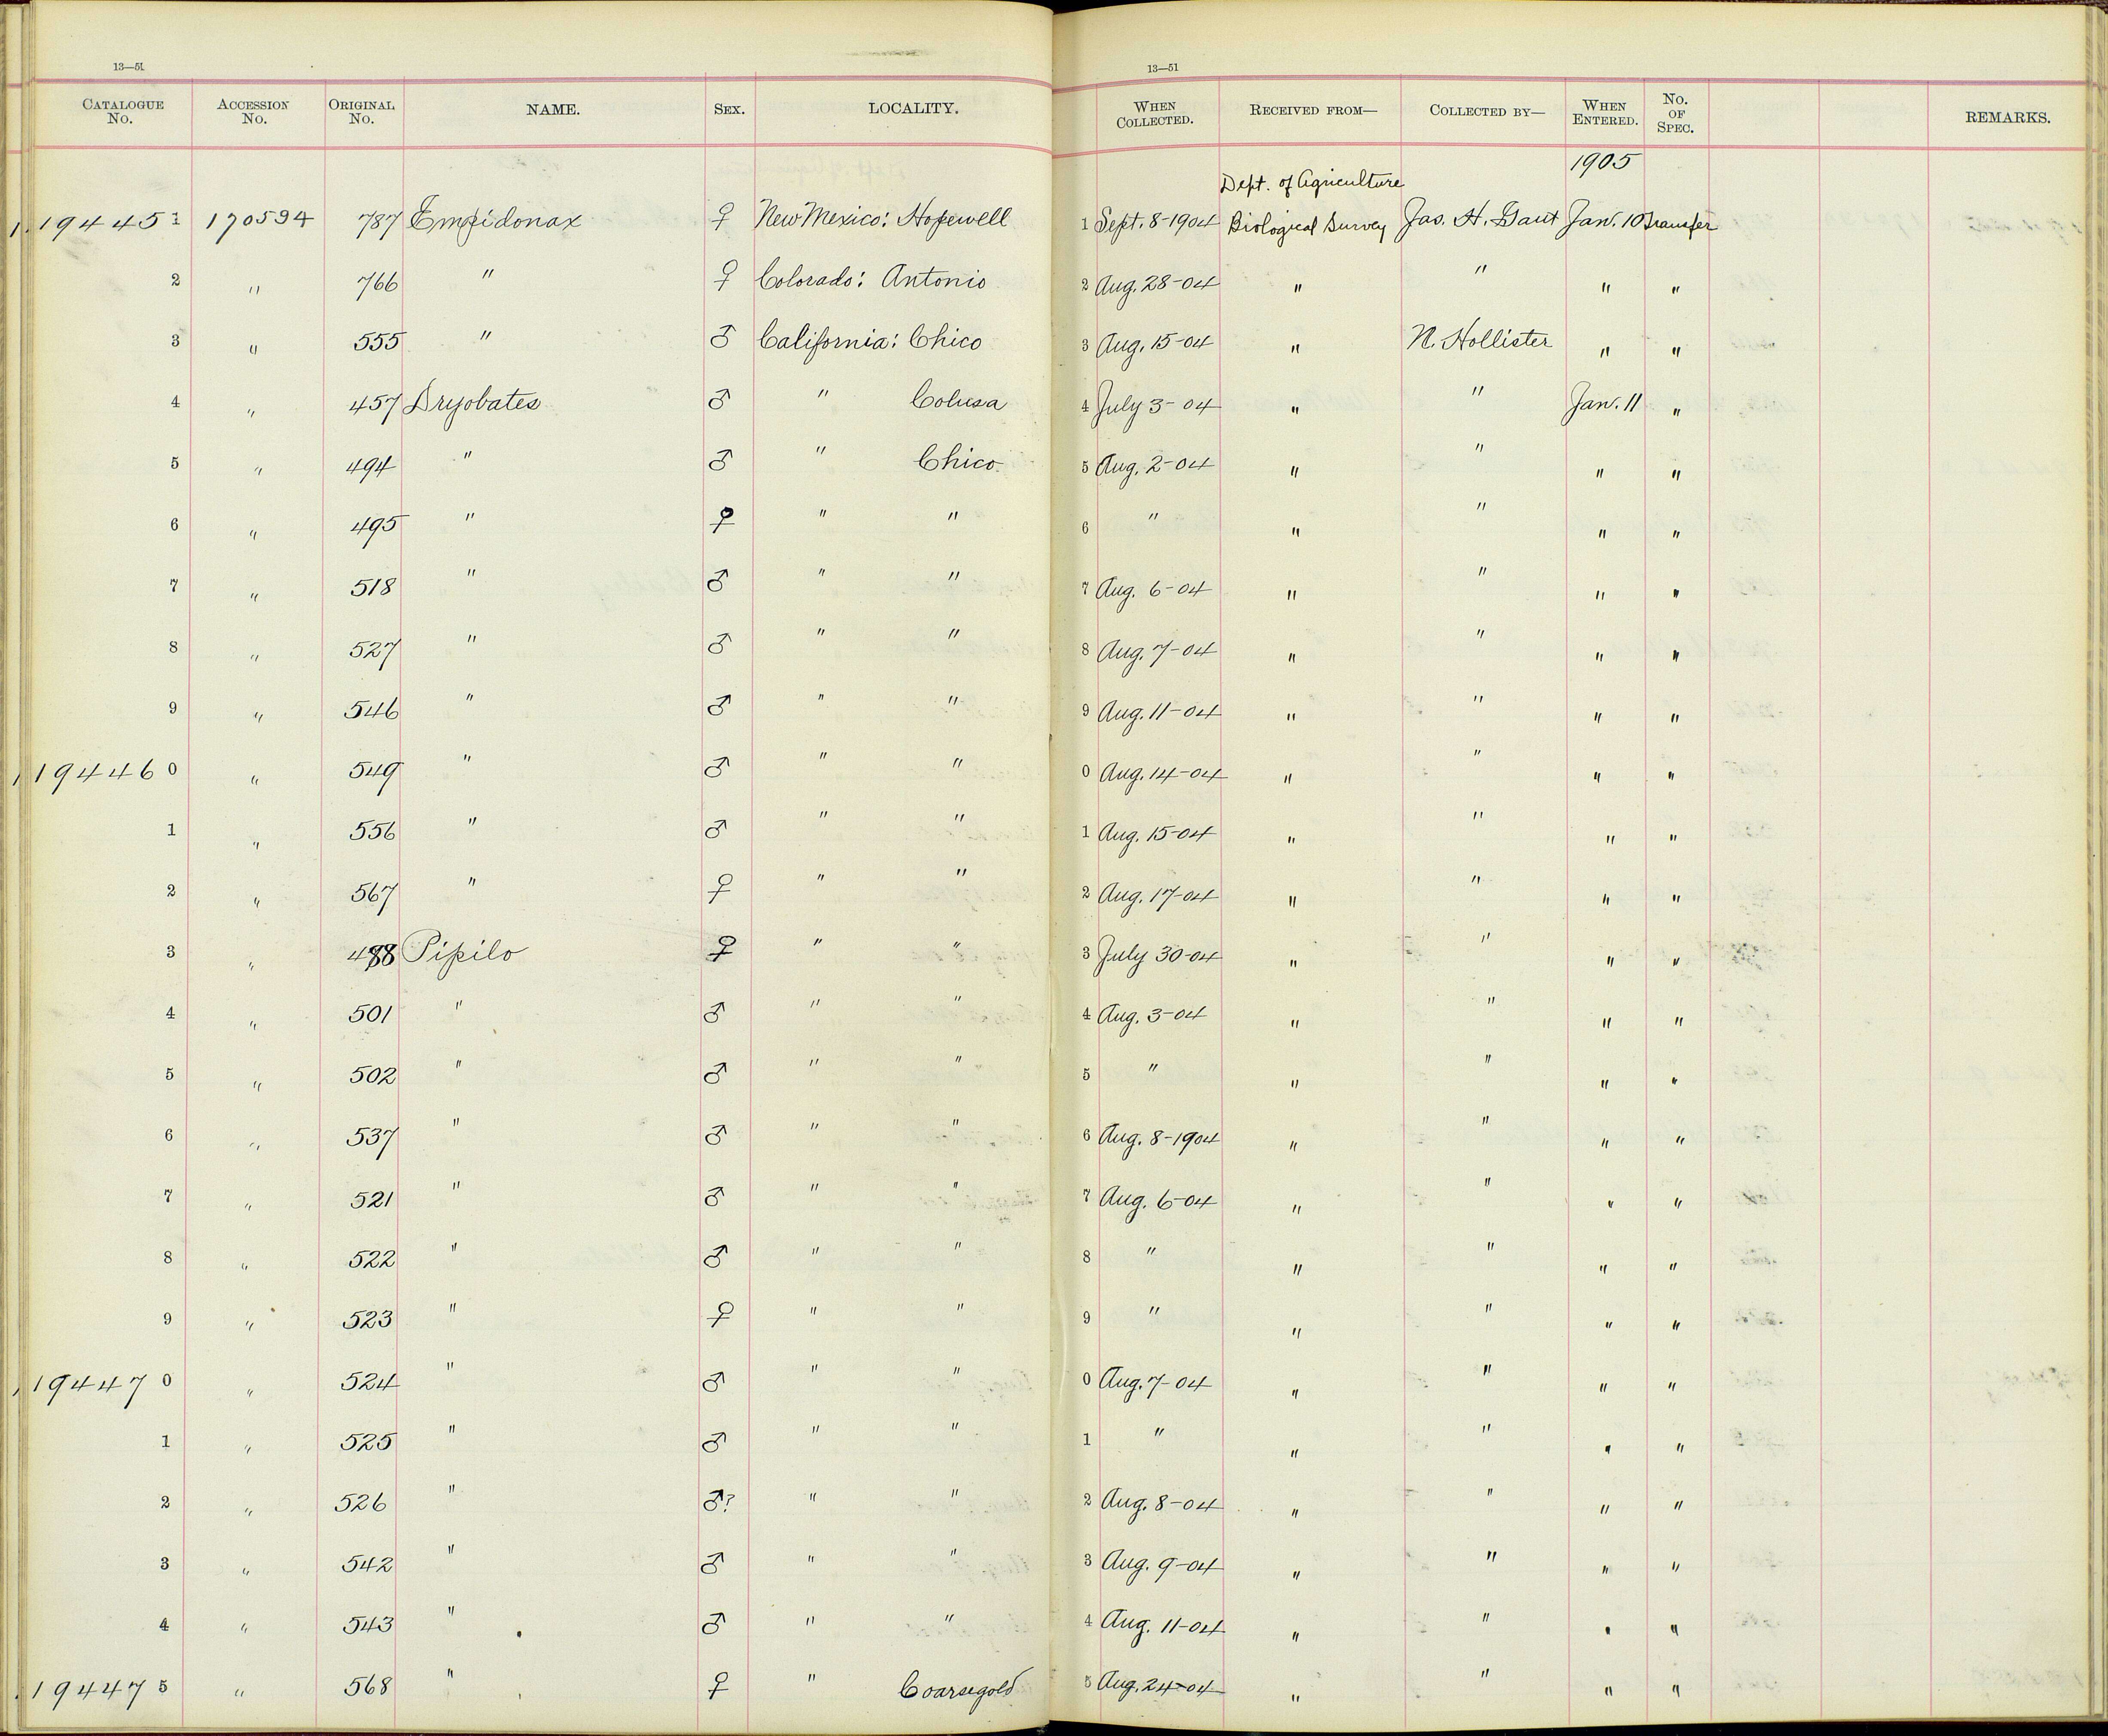 13—51
CATALOGUE No. ACCESSION No. ORIGINAL No. NAME. SEX. LOCALITY.
194451 170594 787 Empidonax ♀ New Mexico: Hopewell
2 " 766 " ♀ Colorado: Antonio
3 " 555 " ♂ California: Chico
4 " 457 Dryobates ♂ " Colusa
5 " 494 " ♂ " Chico
6 " 495 " ♀ " "
7 " 518 " ♂ " "
8 " 527 " ♂ " "
9 " 546 " ♂ " "
194460 " 549 " ♂ " "
1 " 556 " ♂ " "
2 " 567 " ♀ " "
3 " 488 Pipilo ♀ " "
4 " 501 " ♂ " "
5 " 502 " ♂ " "
6 " 537 " ♂ " "
7 " 521 " ♂ " "
8 " 522 " ♂ " "
9 " 523 " ♀ " "
194470 " 524 " ♂ " "
1 " 525 " ♂ " "
2 " 526 " ♂? " "
3 " 542 " ♂ " "
4 " 543 " ♂ " "
194475 " 568 " ♀ " Coarsegold
13—51
WHEN COLLECTED. RECEIVED FROM— COLLECTED BY— WHEN ENTERED. No. OF SPEC. REMARKS.
1905
Dept. of Agriculture
1 Sept. 8-1904 Biological Survey Jas. H. Gaut Jan. 10 Transfer
2 Aug. 28-04 " " " "
3 Aug. 15-04 " N. Hollister " "
4 July 3-04 " " Jan. 11 "
5 Aug. 2-04 " " " "
6 " " " " "
7 Aug. 6-04 " " " "
8 Aug. 7-04 " " " "
9 Aug. 11-04 " " " "
0 Aug. 14-04 " " " "
1 Aug. 15-04 " " " "
2 Aug. 17-04 " " " "
3 July 30-04 " " " "
4 Aug. 3-04 " " " "
5 " " " " "
6 Aug. 8-1904 " " " "
7 Aug. 6-04 " " " "
8 " " " " "
9 " " " " "
0 Aug. 7-04 " " " "
1 " " " " "
2 Aug. 8-04 " " " "
3 Aug. 9-04 " " " "
4 Aug. 11-04 " " " "
5 Aug. 24-04 " " " "